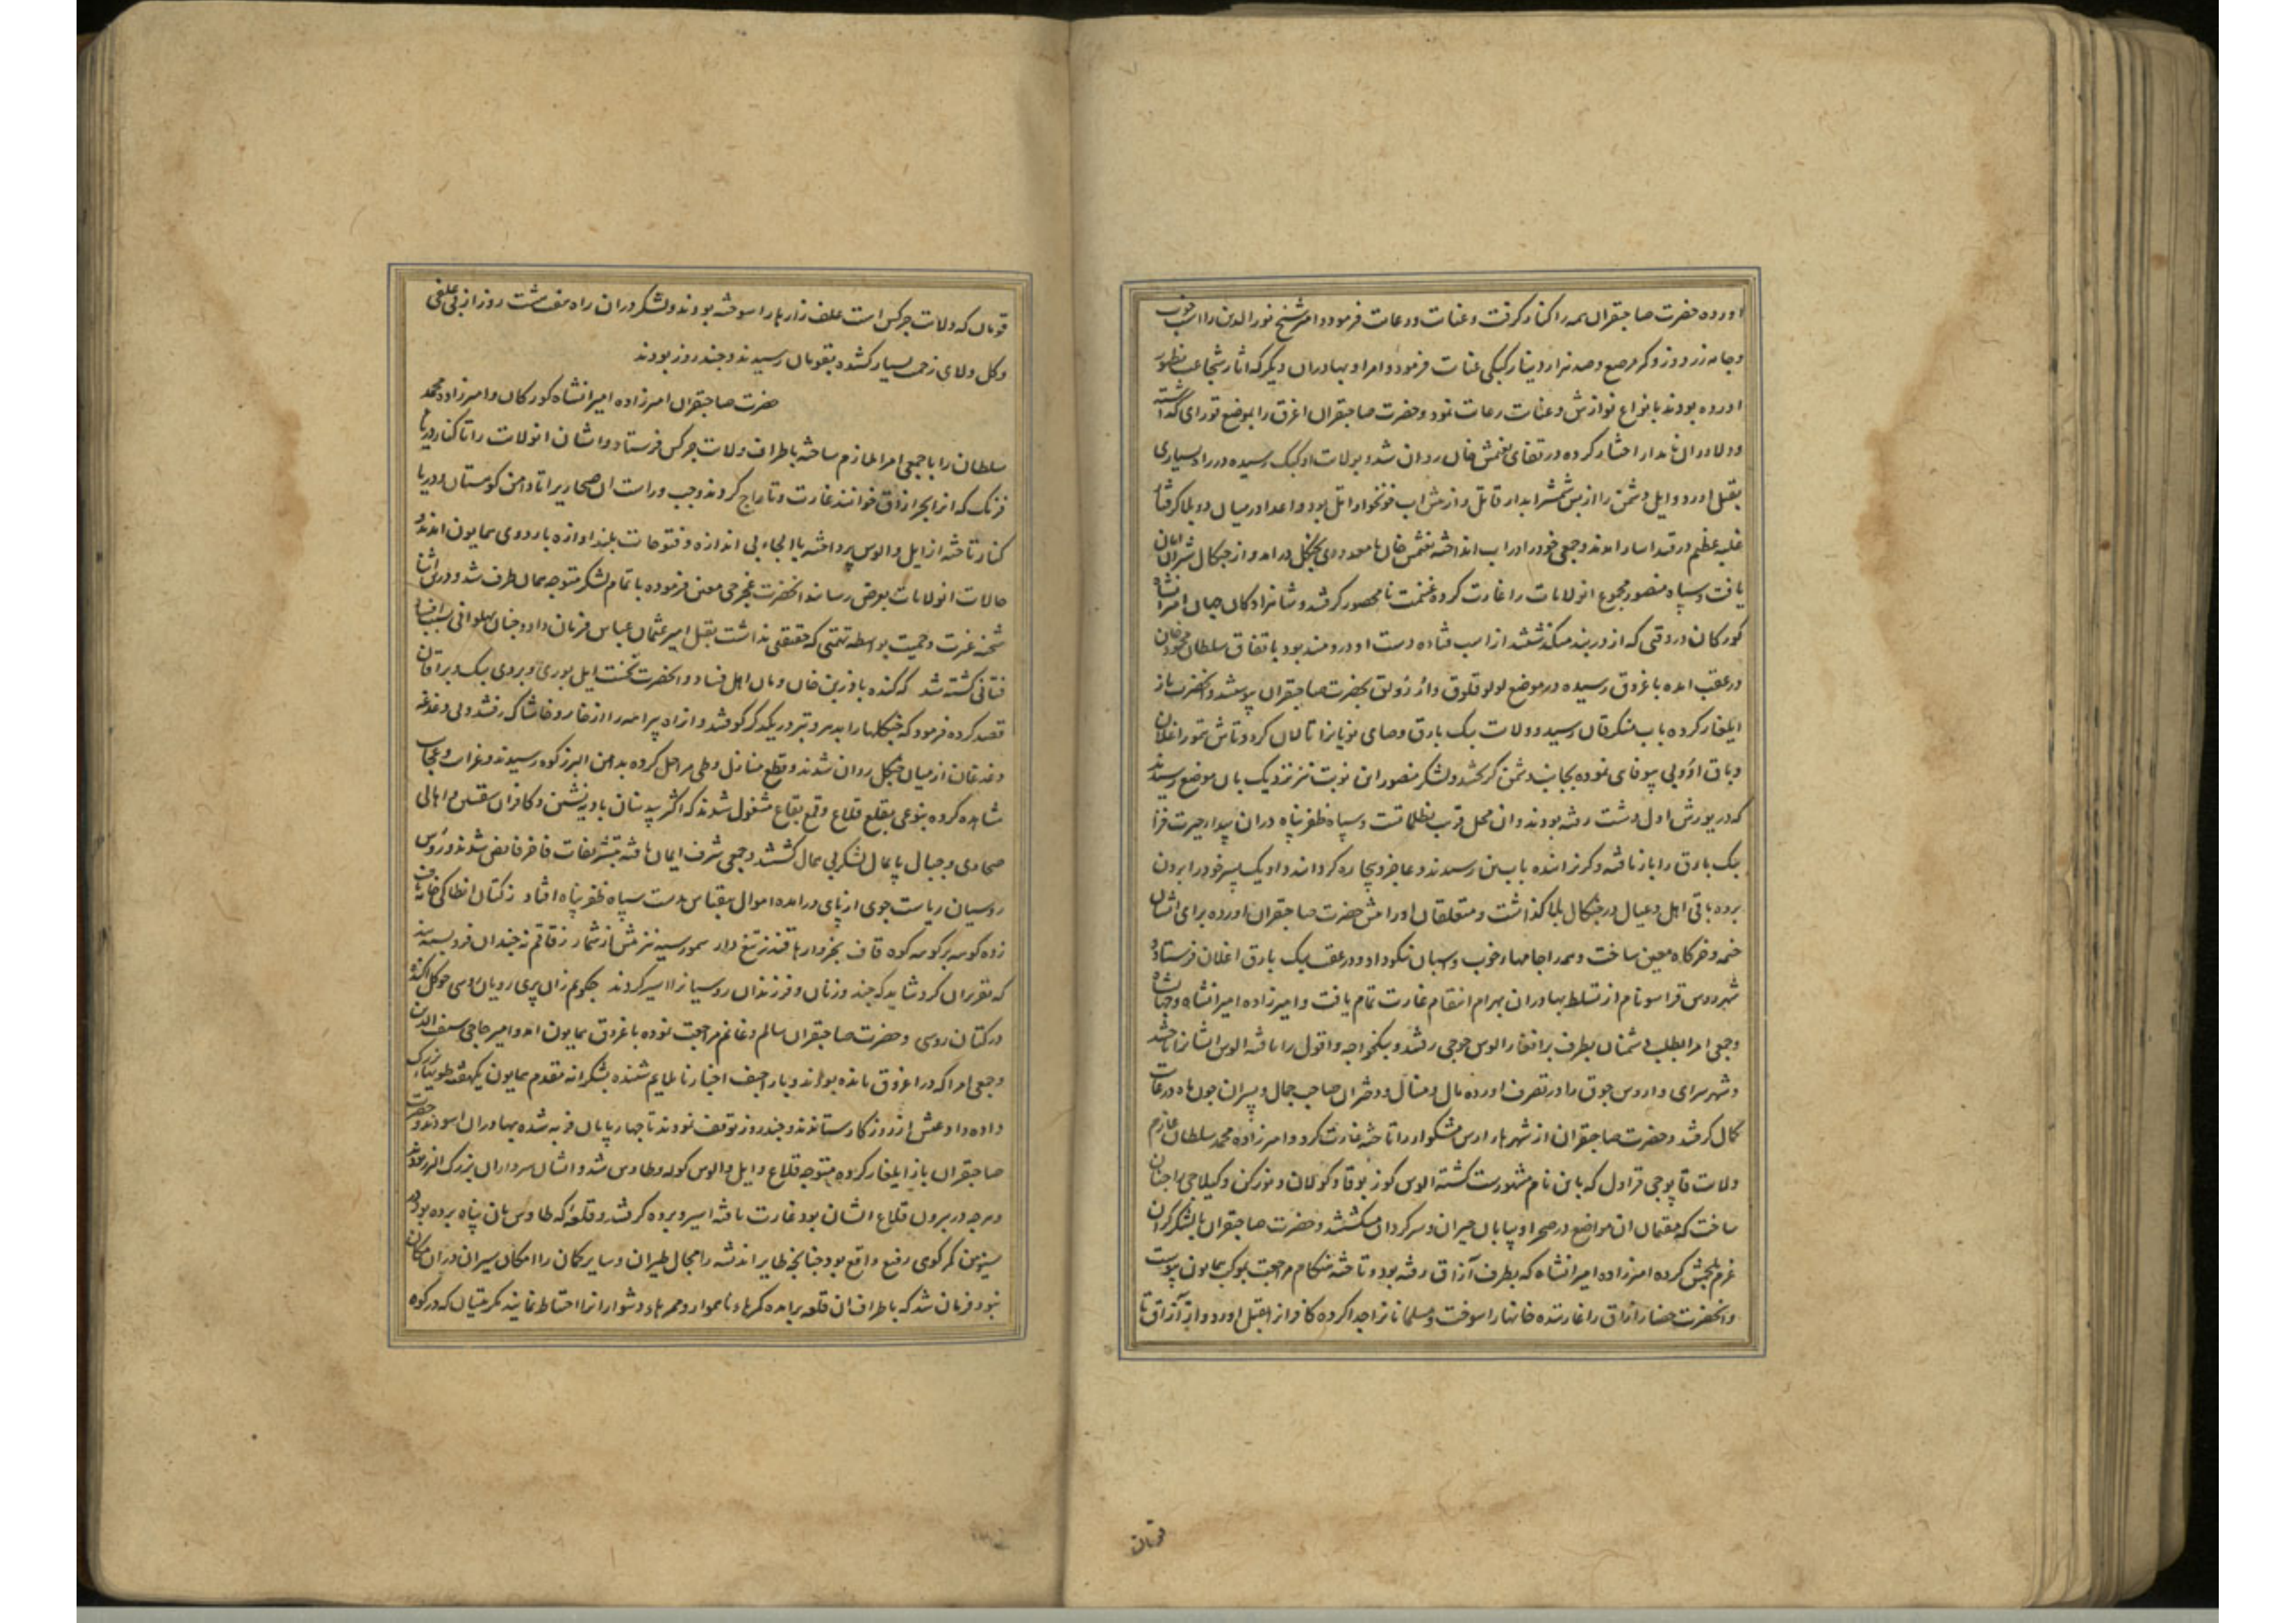 اورده حضرت صاحبقران همه را کنار کرفت و عنایت و رعایت فرمود و امیر شیخ نور الدین را اسب خوب
و جامه زردوز و کمر مرصع و صد هزار دینار کپکی عنایت فرمود و امرا و بهادران دیگر که اثار شجاعت بظهور
اورده بودند بانواع نوازش و عنایت رعایت نمود و حضرت صاحبقران اغرق را بموضع قورای گذاشته
و دلاوران نامدار اختیار کرده در قفای تغتمش خان روان شد و بولایت اوکک رسیده در راه بسیاری
بقتل اورد و ایل دشمن را از پس شمشیر ابدار قاتل و از پیش اب خونخوار اتل بود و اعدا در میان دو بلا گرفتار
غلبه عظیم در قید اسار امدند و جمعی خود را در اب انداخته تغتمش خان با معدودی بجنگل در امد و از چنگال شیران امان
یافت و سپاه منصور مجموع انولایات را غارت کرده غنیمت نامحصور کرفتند و شاهزاده کان جهان امیرانشاه
کورکان در وقتی که از دربند میکذشتند از اسب فتاده دست او دردمند بود باتفاق سلطان محمود خان
در عقب امده باغروق رسیده در موضع لولوقلوق و ائر زولق بحضرت صاحبقران پیوستند و انحضرت باز
ایلغار کرده باب منکرقان رسید و ولایت بیک یارق و صای نویانرا تالان کرد و تاش تمور اغلان
و باق اؤ بی پیوفای نموده بجانب دشمن کریختند و لشکر منصور این نوبت نیز نزدیک بان موضع رسیدند
که در یورش اول دشت رفته بودند و ان محل قریب بظلماتست و سپاه ظفر پناه دران بیدار حیرت فزا
بیک یارق را باز یافته و کریزانیده باب تن رسیدند و عاجز و بیچاره گردانیدند و او یک پسر خود را بیرون
برده باقی اهل و عیال در چنگال بلا گذاشت و متعلقان او را پیش حضرت صاحبقران اورده برای ایشان
خیمه و خرگاه معین ساخت و همه را جامهاء خوب و اسبان نیکو داد و در عقب بیک یارق اغلان فرستاد و
شهر روس قراسو نام از تسلط بهادران بهرام انتقام غارت تمام یافت و امیرزاده امیرانشاه و جهانشاه
و جمعی امرا بطلب دشمنان بطرف برانغار الوس جوجی رفتند و بیکخواجه و اتول را یافته الوس ایشانرا تاختند
و شهر سرای و اروس جوق را در تصرف اورده مال و منال و دختران صاحب جمال و پسران چون ماه در غایت
کمال کرفتند و حضرت صاحبقران از شهرهاء اروس مشکو اورا تاخته غارت کرد و امیرزاده محمد سلطان عازم
ولایت قاپوجی قراول که باین نام مشهورست کشته الوس کوزبوقا و کورلان و نوزکن و کیلاجی را چنان
ساخت که مقیمان ان مواضع در صحرا و بیابان حیران و سرکردان میکشتند و حضرت صاحبقران با لشکر کران
عزم جنبش کرده امیرزاده امیرانشاه که بطرف آزاق رفته بود و تاخته هنکام مراجعت بموکب همایون پیوست
و انحضرت حصار ازاق را غارتیده خانها را سوخت و مسلمانانرا جدا کرده کافرانرا بقتل اورد و از آزاق تا
قوبان
قوبان که ولایت چرکس است علف زارها را سوخته بودند و لشکر دران راه هفت هشت روز از بی علفی
و کل و لای زحمت بسیار کشیده بقوبان رسیدند و چند روز بودند
حضرت صاحبقران امیرزاده امیرانشاه کورکان و امیرزاده محمد
سلطان را با جمعی امرا ملازم ساخته باطراف ولایت چرکس فرستاد و ایشان انولایت را تا کنار دریاء
فرنک که انرا بحر ازاق خوانند غارت و تاراج کردند و چپ و راست ان صحاریرا تا دامن کوهستان و دریا
کنار تاخته از ایل و الوس پرداخته با الجاء بی اندازه و فتوحات بلند اوازه باردوی همایون امدند و
حالات انولایات بعرض رسانده انحضرت غجرجی معین فرموده با تمام لشکر متوجه همان طرف شد و درین اثنا
شحنه غیرت و حمیت بواسطه تهمتی که حقیقتی نداشت بقتل امیر عثمان عباس فرمان داد و چنان پهلوانی بسبب افساد
فتانی کشته شد که کنده باد زبن خان و مان اهل فساد و انحضرت نخست ایل بوری و بردی بیک و برافان
قصد کرده فرمود که جنگلها را بدبر و تبر در یکدیگر کوفتند و ازاد پیرامه را از خار و خاشاک رفتند و بی دغدغه
و غدغان از میان جنگل روان شدند و قطع منازل و طی مراحل کرده بدامن البرز کوه رسیدند و غرایب و عجایب
مشاهده کرده بنوعی بقلع قلاع و قمع بقاع مشغول شدند که اکثر بیدینان بادیه نشین و کافران سقنین و اهالی
صحاری و جبال پایمال لشکر بی همال کشتند و جمعی شرف ایمان یافته بتشریفات فاخر فایض شدند و رؤس
روسیان ریاست جوی از پای درامده اموال بیقیاس بدست سپاه ظفر پناه افتاد ز کتان انطاکی خانه باف
زده کوه بر کوه کوه قاف بخروارها قندز تیغ دار سمور سیه نیز بیش از شمار ز قاقم نه چندان فرو بسته بند
که تقریر ان کرد شاید که چند و زنان و فرزندان روسیانرا اسیر کردند چگویم زان پری رویان روسی چو گل اکنده
در کتان روسی و حضرت صاحبقران سالم و غانم مراجعت نموده باغروق همایون امد و امیر حاجی سیف الدین
و جمعی امرا که در اغروق مانده بودند و باراجیف اخبار ناملایم شنیده بشکرانه مقدم همایون یکهفته طویهاء بزرک
داده داد عیش از روزکار بستاندند و چند روز توقف نمودند تا چهارپایان فربه شده بهادران اسودند و حضرت
صاحبقران باز ایلغار کرده متوجه قلاع و ایل و الوس کوله و طاوس شد و ایشان سرداران بزرک البرز بودند
و هرچه در بیرون قلاع ایشان بود غارت یافته اسیر و برده کرفتند و قلعهٔ که طاوس بان پناه برده بود در
سیومین کمر کوهی رفیع واقع بود چنانچه طایر اندیشه را مجال طیران و سایر کمان را امکان سیران دران مکان
نبود فرمان شد که باطراف ان قلعه برامده کمرهاء ناهموار و ممرهاء دشوار انرا احتیاط نمایند مکریتیان که در کوه